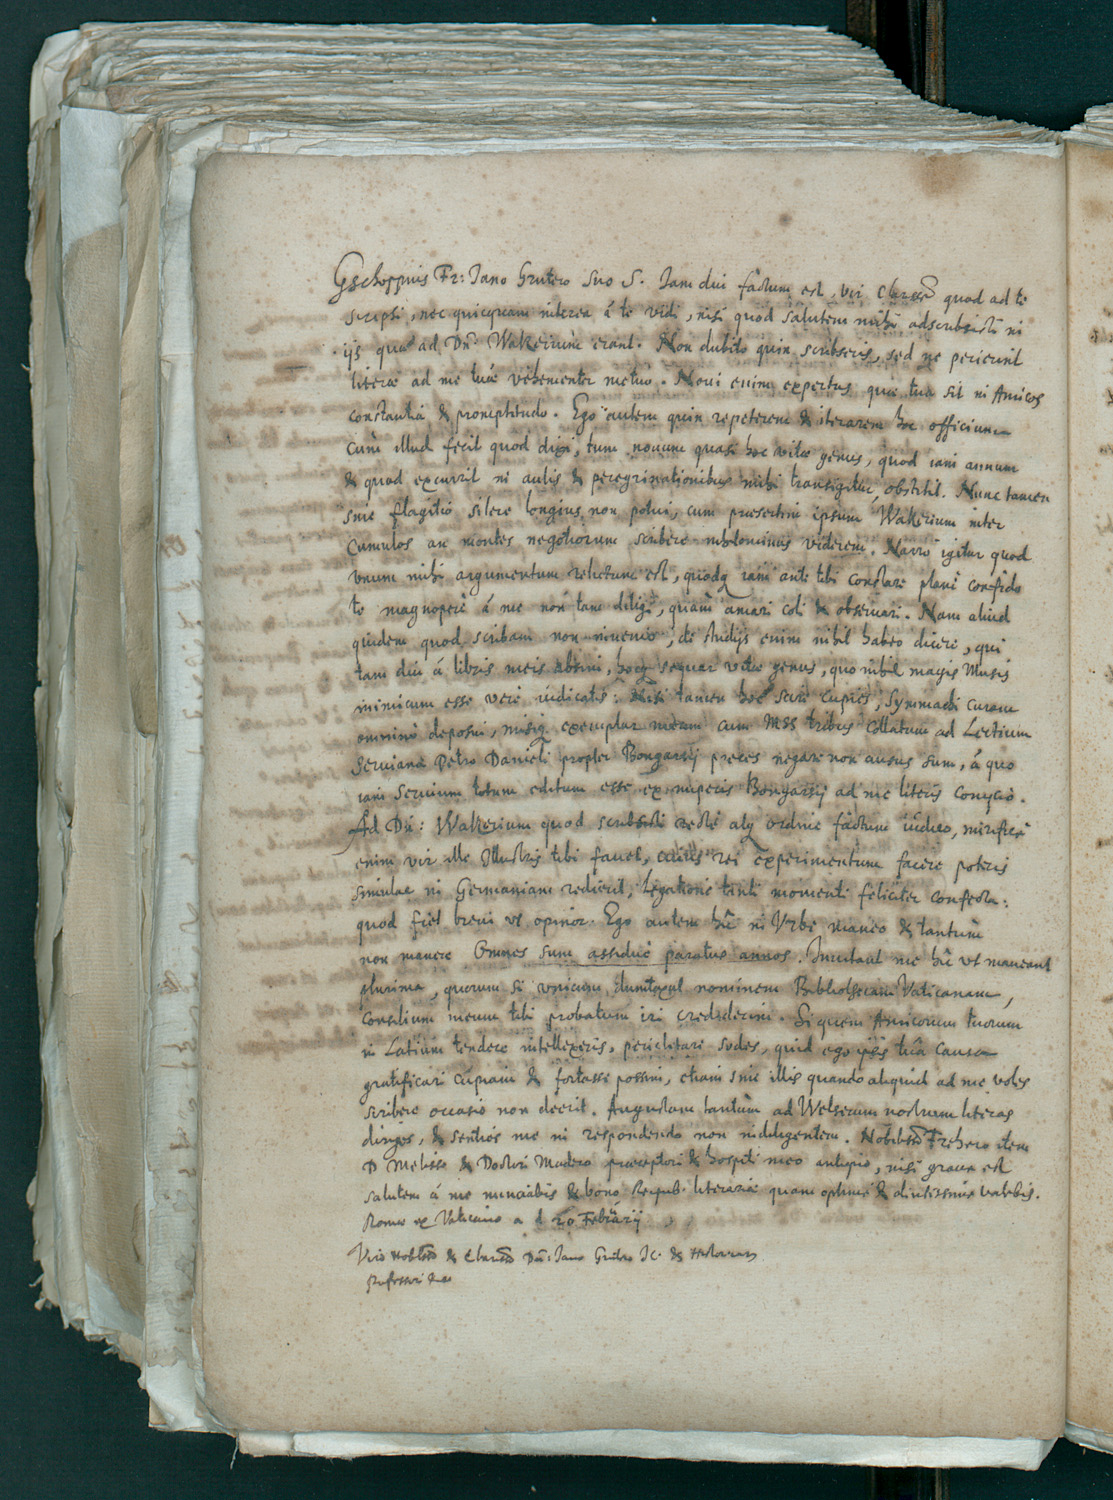 GSchoppius Fr: Jano Grutero suo S. Jam diu factum est, Vir Clarisse quod ad te
scripsi, nec quicquam interea á te vidi, nisi quod salutem mihi adscribsisti in
ijs quae ad Dn: Wakerium erant. Non dubito quin scribseris, sed ne perierint
literae ad me tuae vehementer metuo. Noui enim expertus quae tua sit in Amicos
constantia & promptitudo. Ego autem quin repeterem & iterarem hoc officium
cum illud fecit quod dixi, tum nouum quasi hoc vitae genus, quod iam annum
& quod excurrit in aulis & peregrinationibus mihi transigitur, obstitit. Nunc tamen
sine flagitio silere longius non potui, cum praesertim ipsum Wakerium inter
Cumulos ac montes negotiorum scribere nihilominus viderem. Narro igitur quod
vnum mihi argumentum relictum est, quodq iam ante tibi constare plané confido
te magnoperé á me non tam diligi, quam amari coli & obseruari. Nam aliud
quidem quod scribam non inuenio, de studijs enim nihil habeo dicere, qui
tam diu á libris meis absim, hocq sequar vitae genus, quo nihil magis Musis
inimicum esse veré iudicatis: Nisi tamen hoc scire cupies, Symmachi curam
omnino deposui, misiq exemplar meum cum MSS tribus collatum ad Lectium
Seruiana Petro Danieli propter Bongarsij preces negare non ausus sum, á quo
iam Seruium totum editum esse ex nuperis Bongarsij ad me literis conijcio.
Ad Dn: Wakerium quod scribsisti recté atq ordine factum iudico, mirificé
enim vir ille Illustris tibi fauet, cuius rei experimentum facere poteris
simulac in Germaniam redierit, legatione tanti momenti feliciter confecta:
quod fiet breui vt opinor. Ego autem hic in Vrbe maneo & tantum
non manere Omnes sum assidué paratus annos. Inuitant me hic vt maneant
plurima, quorum si vnicum dumtaxat nominem Bibliothecam Vaticanam,
consilium meum tibi probatum iri crediderim. Si quem Amicorum tuorum
in Latium tendere intellexeris, periclitare sodes, quid ego ipsis tuâ causa
gratificari cupiam & fortasse possim, etiam sine illis quando aliquid ad me voles
scribere occasio non deerit. Augustam tantum ad Welserum nostrum literas
diriges, & senties me in respondendo non indiligentem. Nobilisso Frehero item
D Melisso & Doctori Madero praeceptori & hospiti meo antiquo, nisi graue est
salutem á me nunciabis & bono Reipub. literariae quam optimé & diutissimé valebis.
Romae ex Vaticano a d 20 Februarij
Viro Nobilisso & Clarisso Dn: Jano Grutero JC. & Historiarum
Professori &c